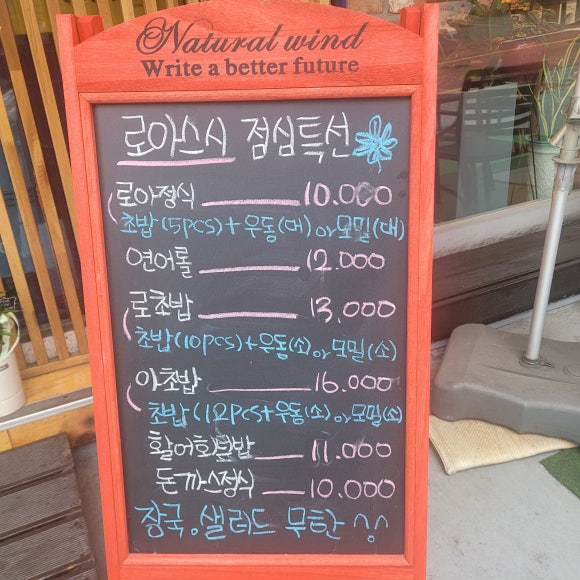 Natural wind
Write a better future
로아스시 점심특선
로아정식 10.000
초밥(5pcs)+우동(대) or 모밀(대)
연어롤 12.000
로초밥 13.000
초밥(10pcs)+우동(소) or 모밀(소)
아초밥 16.000
초밥(12pcs+우동(소) or 모밀(소)
활어회덮밥 11.000
돈까스정식 10.000
장국。샐러드 무한 ^.^